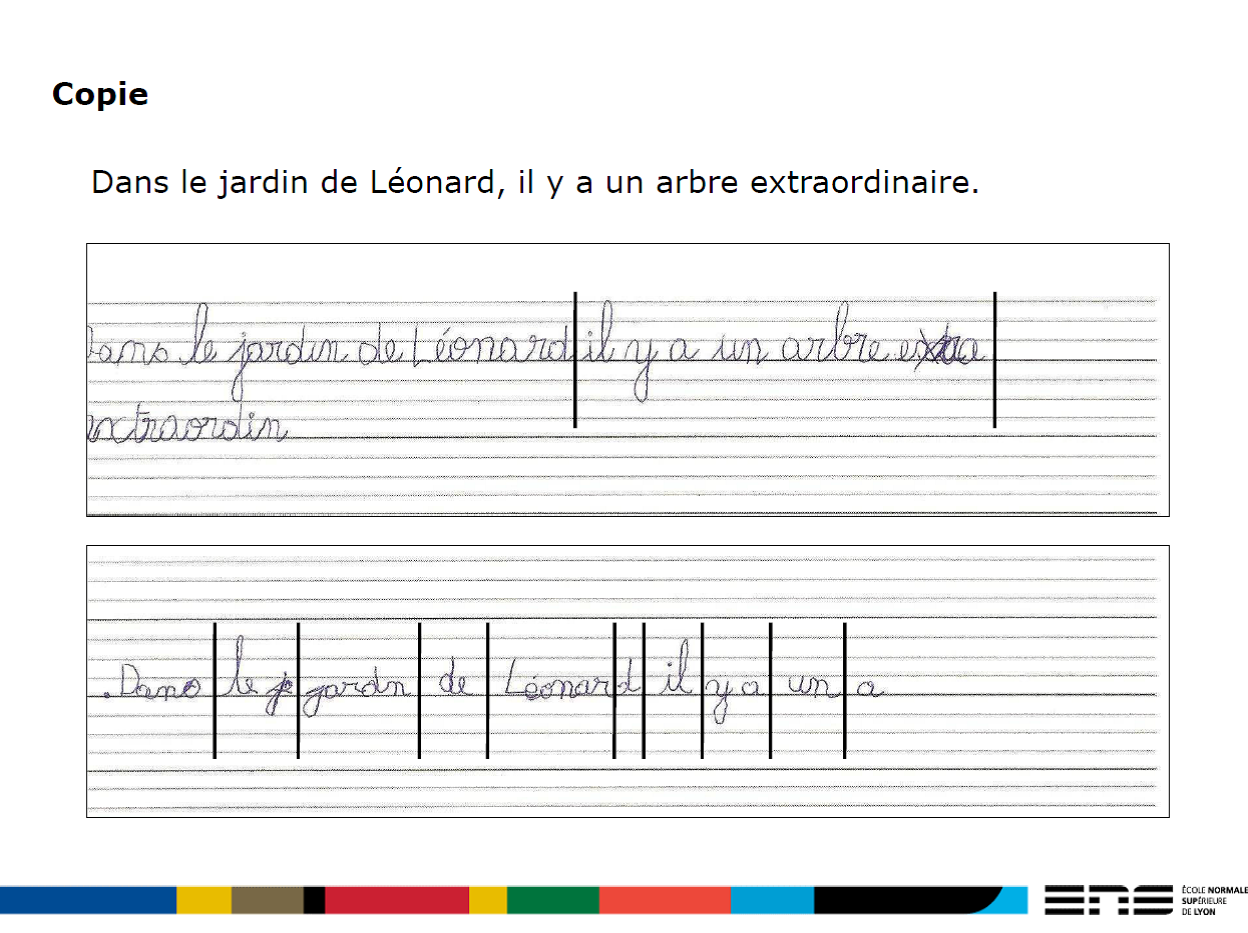 Copie
Dans le jardin de Léonard, il y a un arbre extraordinaire.
Dans le jardin de Léonard il y a un arbre extra
extraordin
. Dans le je jardn de Léonard il y a un a
ÉCOLE NORMALE
SUPÉRIEURE
DE LYON